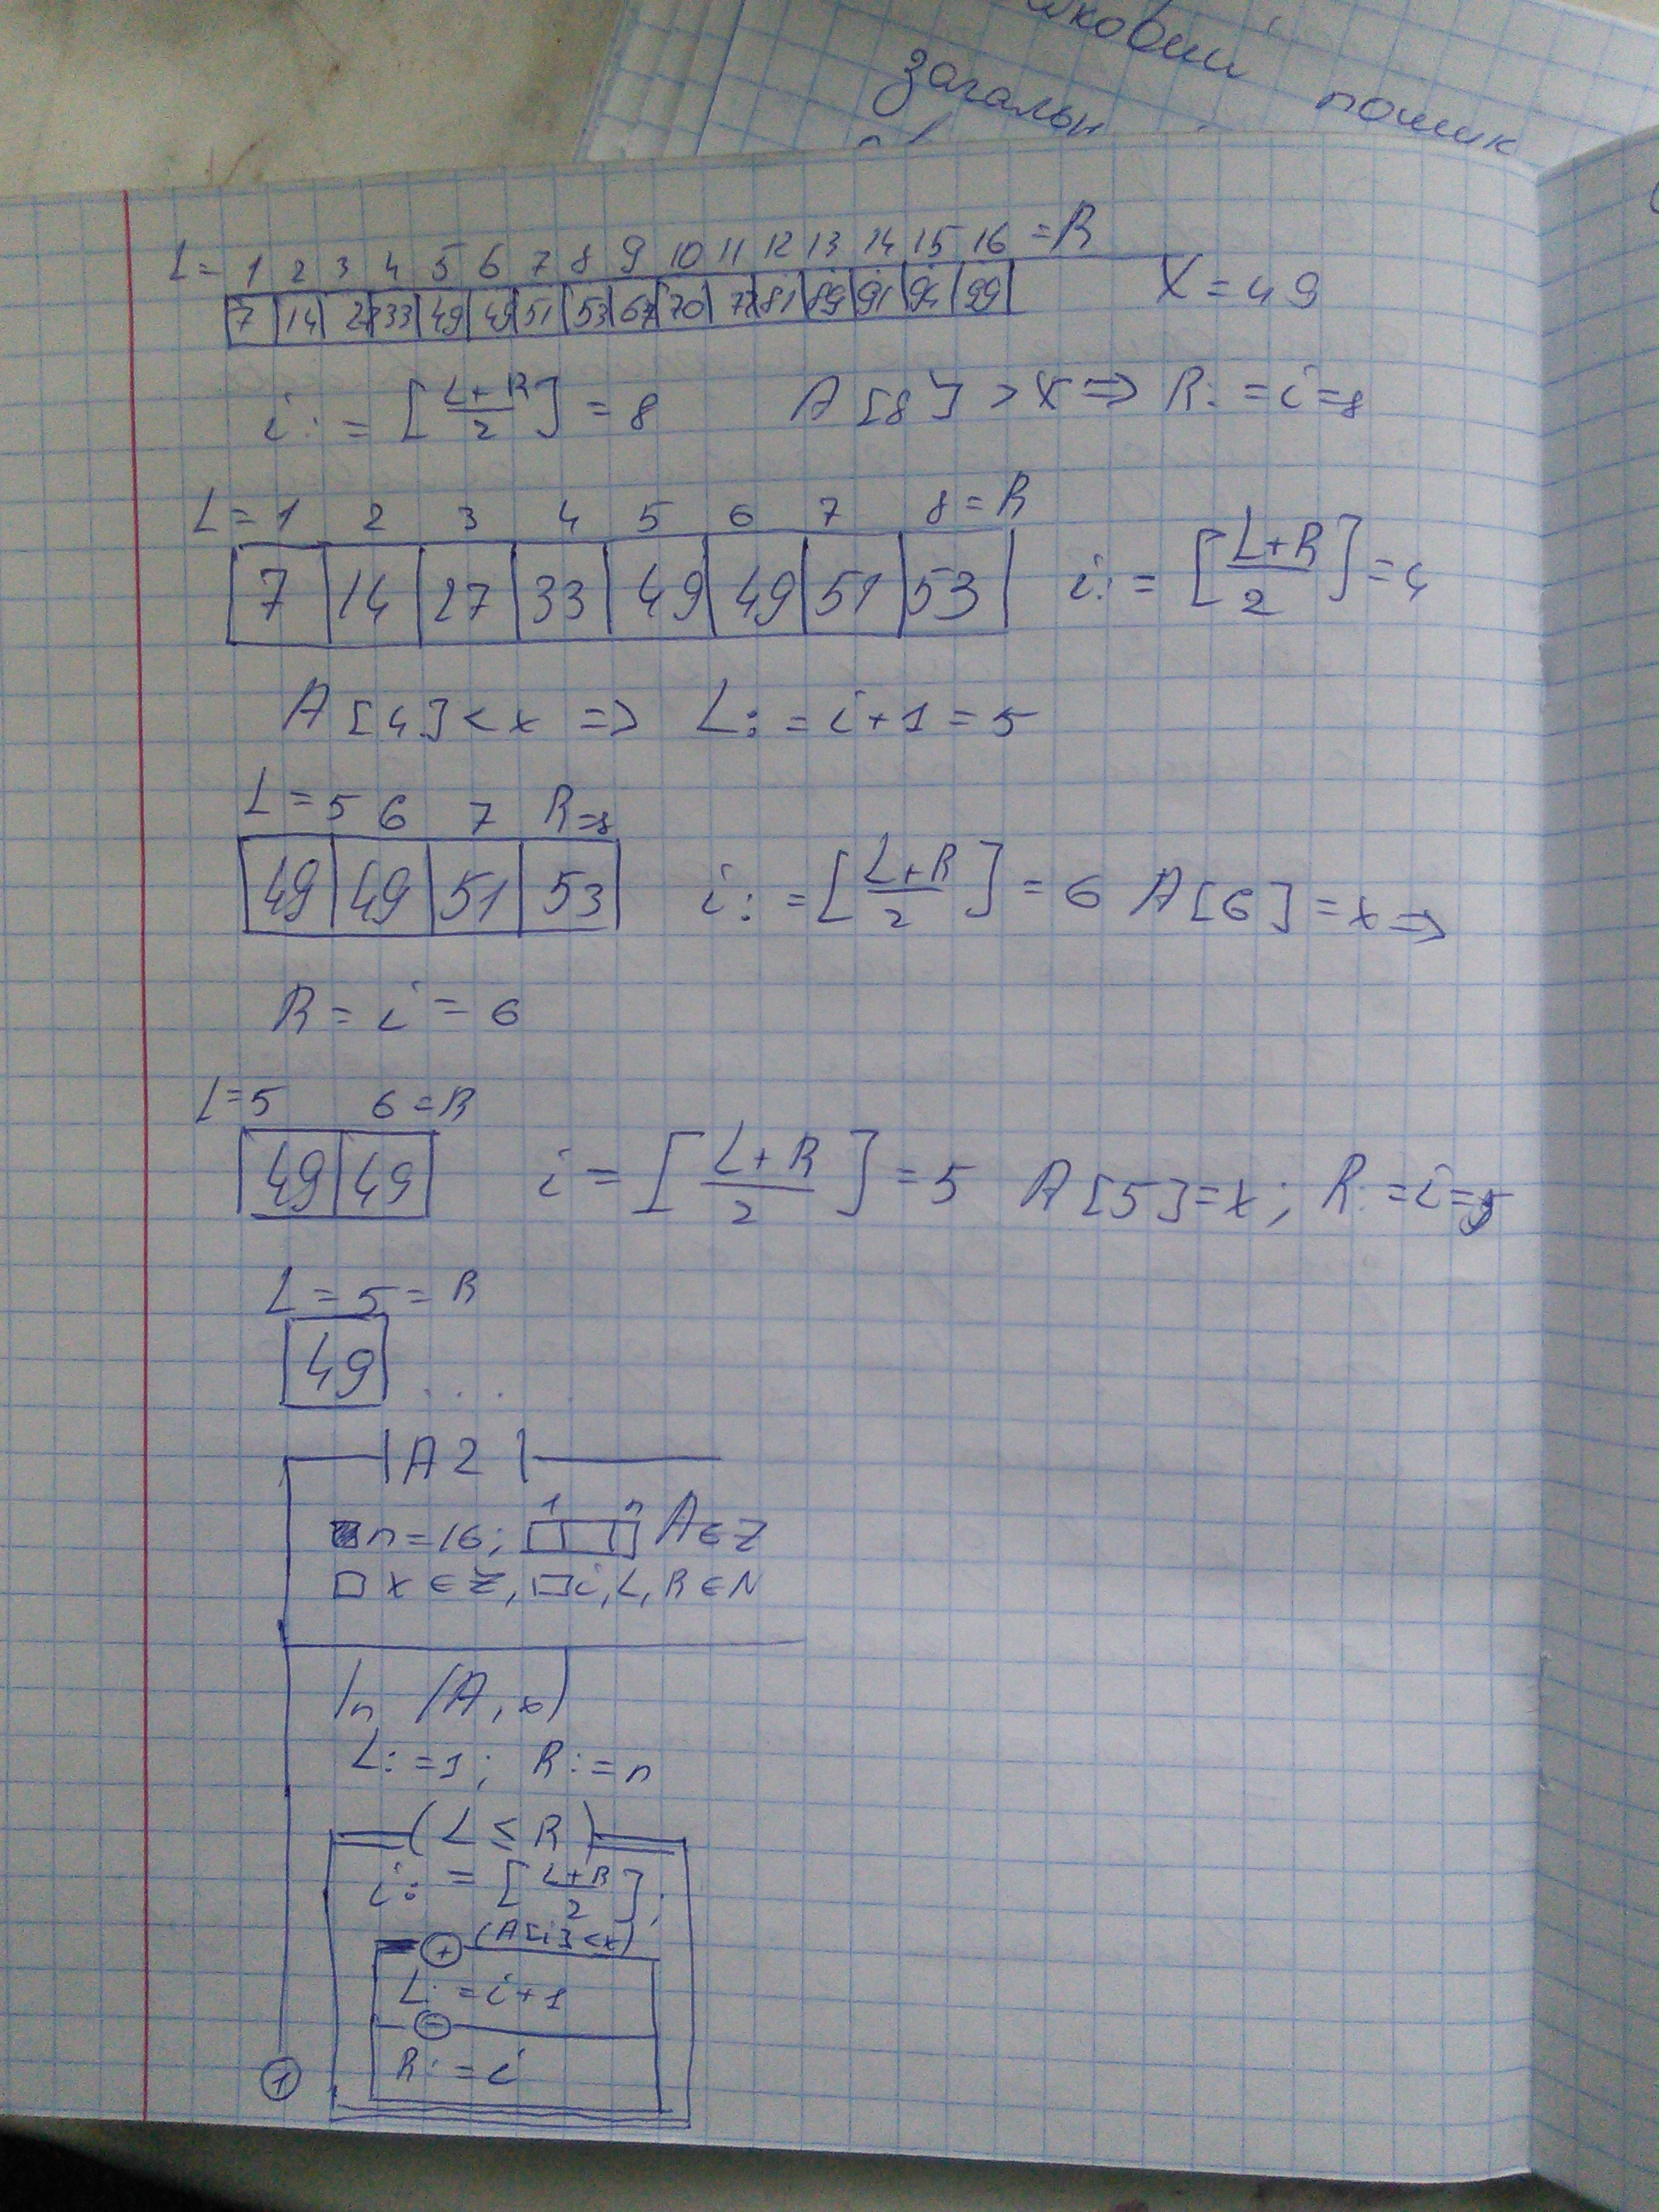 загальн
пошук
L= 1 2 3 4 5 6 7 8 9 10 11 12 13 14 15 16 =R
7 14 27 33 49 49 51 53 67 70 77 81 89 91 94 99 X=49
i:=[(L+R)/2]=8 A[8]>X⇒R:=i=8
L=1 2 3 4 5 6 7 8=R
7 14 27 33 49 49 51 53 i:=[(L+R)/2]=4
A[4]<x ⇒ L:=i+1=5
L=5 6 7 R=8
49 49 51 53 i:=[(L+R)/2]=6 A[6]=x⇒
R=i=6
L=5 6=R
49 49 i=[(L+R)/2]=5 A[5]=x; R:=i=5
L=5=R
49 ...
A2
1 n
n=16; A∈Z
□ x∈Z, □ i,L,R∈N
In (A,x)
L:=1; R:=n
(L≤R)
i:=[(L+R)/2];
+ (A[i]<x)
L:=i+1
-
R:=i
1